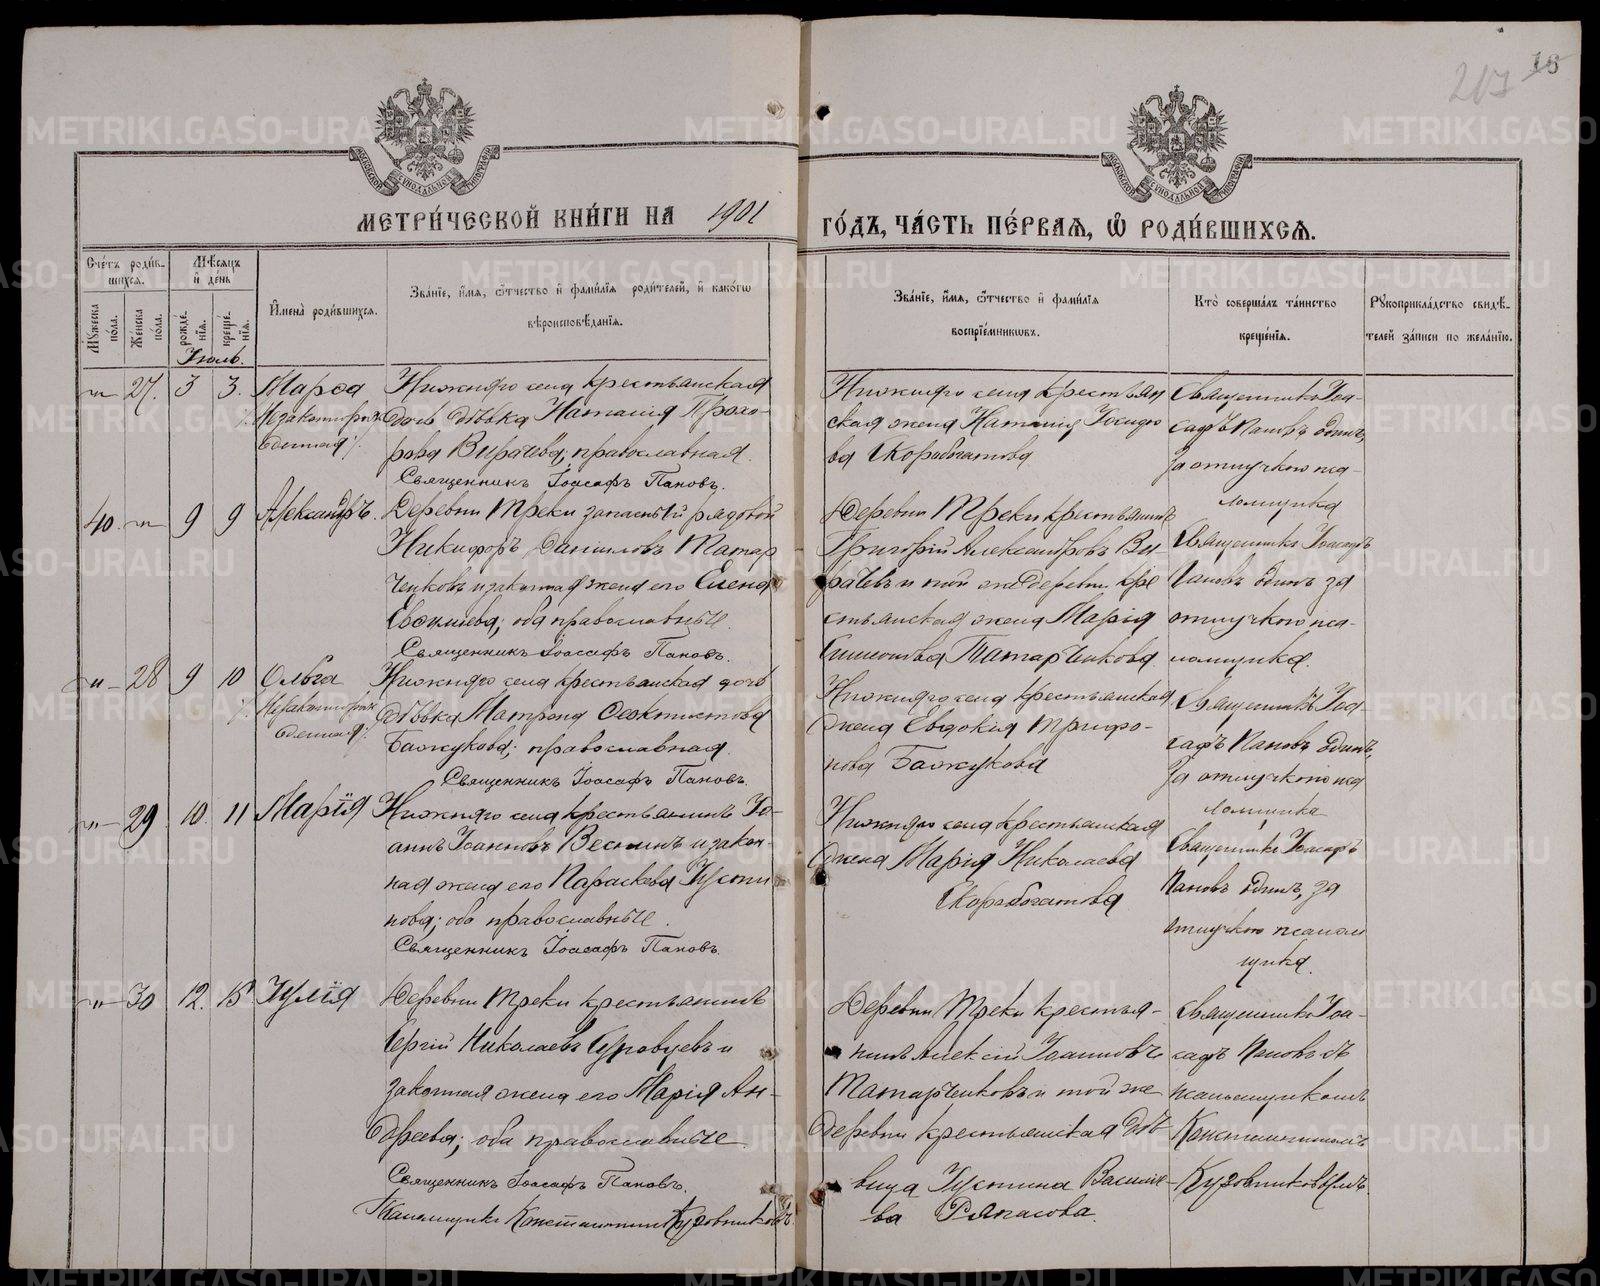 207 16
МЕТРИ́ЧЕСКОЙ КНИ́ГИ НА 1901 ГО́ДЪ, ЧА́СТЬ ПЕ́РВАЯ, Ѡ҆ РОДИ́ВШИХСЯ.
Сче́тъ роди́в-
шихся.
Мꙋ́жеска по́ла.
Же́нска по́ла.
Мѣ́сяцъ и҆ де́нь
рожде́-
нїя.
креще́-
нїя.
Іюль.
И҆мена̀ роди́вшихся.
Зва́нїе, и҆́мя, ѻ҆́тчество и҆ фами́лїя роди́телей, и҆ како́гѡ
вѣроисповѣ́данїя.
Зва́нїе, и҆́мя, ѻ҆́тчество и҆ фами́лїя
воспрїе́мникѡвъ.
Кто̀ соверша́лъ та́инство
креще́нїя.
Рꙋкоприкла́дство свидѣ́-
телей за́писи по жела́нїю.
"
27.
3
3.
Незаконорож
денная
Нижняго села крестьянская
дочь дѣвка Наталія Прохо-
рова Вирачева; православная.
Священникъ Іоасафъ Пановъ.
Нижняго села крестьян
ская жена
ва Скоробогатова
Священникъ Іоа-
сафъ Пановъ одинъ,
за отлучкою пса-
ломщика
40.
"
9
9
Александръ.
Деревни Треки запасный рядовой
Никифоръ Даніиловъ Татар
ченковъ и законная жена его Елена
Евдокиева; оба православные.
Священникъ Іоасафъ Пановъ.
Деревни Треки крестьянинъ
Григорій Александровъ Ви-
рачевъ и той же деревни кре
стьянская жена Марія
Симеонова Татарченкова
Священникъ Іоасафъ
Пановъ одинъ за
отлучкою пса-
ломщика.
"
28
9
10
Ольга
Незаконорож
денная
Нижняго села крестьянская дочь
дѣвка Матрона Феоктистова
Бажукова; православная.
Священникъ Іоасафъ Пановъ.
Нижняго села крестьянская
жена Евдокія Трифо-
нова Бажукова
Священникъ Іоа-
сафъ Пановъ одинъ,
за отлучкою пса
ломщика
"
29
10.
11
Марія
Нижняго села крестьянинъ Іо-
аннъ Іоанновъ Веснинъ и закон-
ная жена его Параскева Іусти
нова; оба православные.
Священникъ Іоасафъ Пановъ.
Нижняго села крестьянская
жена Марія Николаева
Скоробогатова
Священникъ Іоасафъ
Пановъ одинъ, за
отлучкою псалом
щика.
"
30
12.
15
Іулія
Деревни Треки крестьянинъ
Сергій Николаевъ и
законная жена его Марія Ан-
дреева; оба православные
Священникъ Іоасафъ Пановъ.
Псаломщикъ Константинъ Кузовниковъ
Деревни Треки крестья-
нинъ Алексій Іоанновъ
Татарченковъ и той же
деревни крестьянская дѣ-
вица Іустина Василье-
ва
Священникъ Іоа-
сафъ Пановъ съ
псаломщикомъ
Константиномъ
Кузовниковымъ.